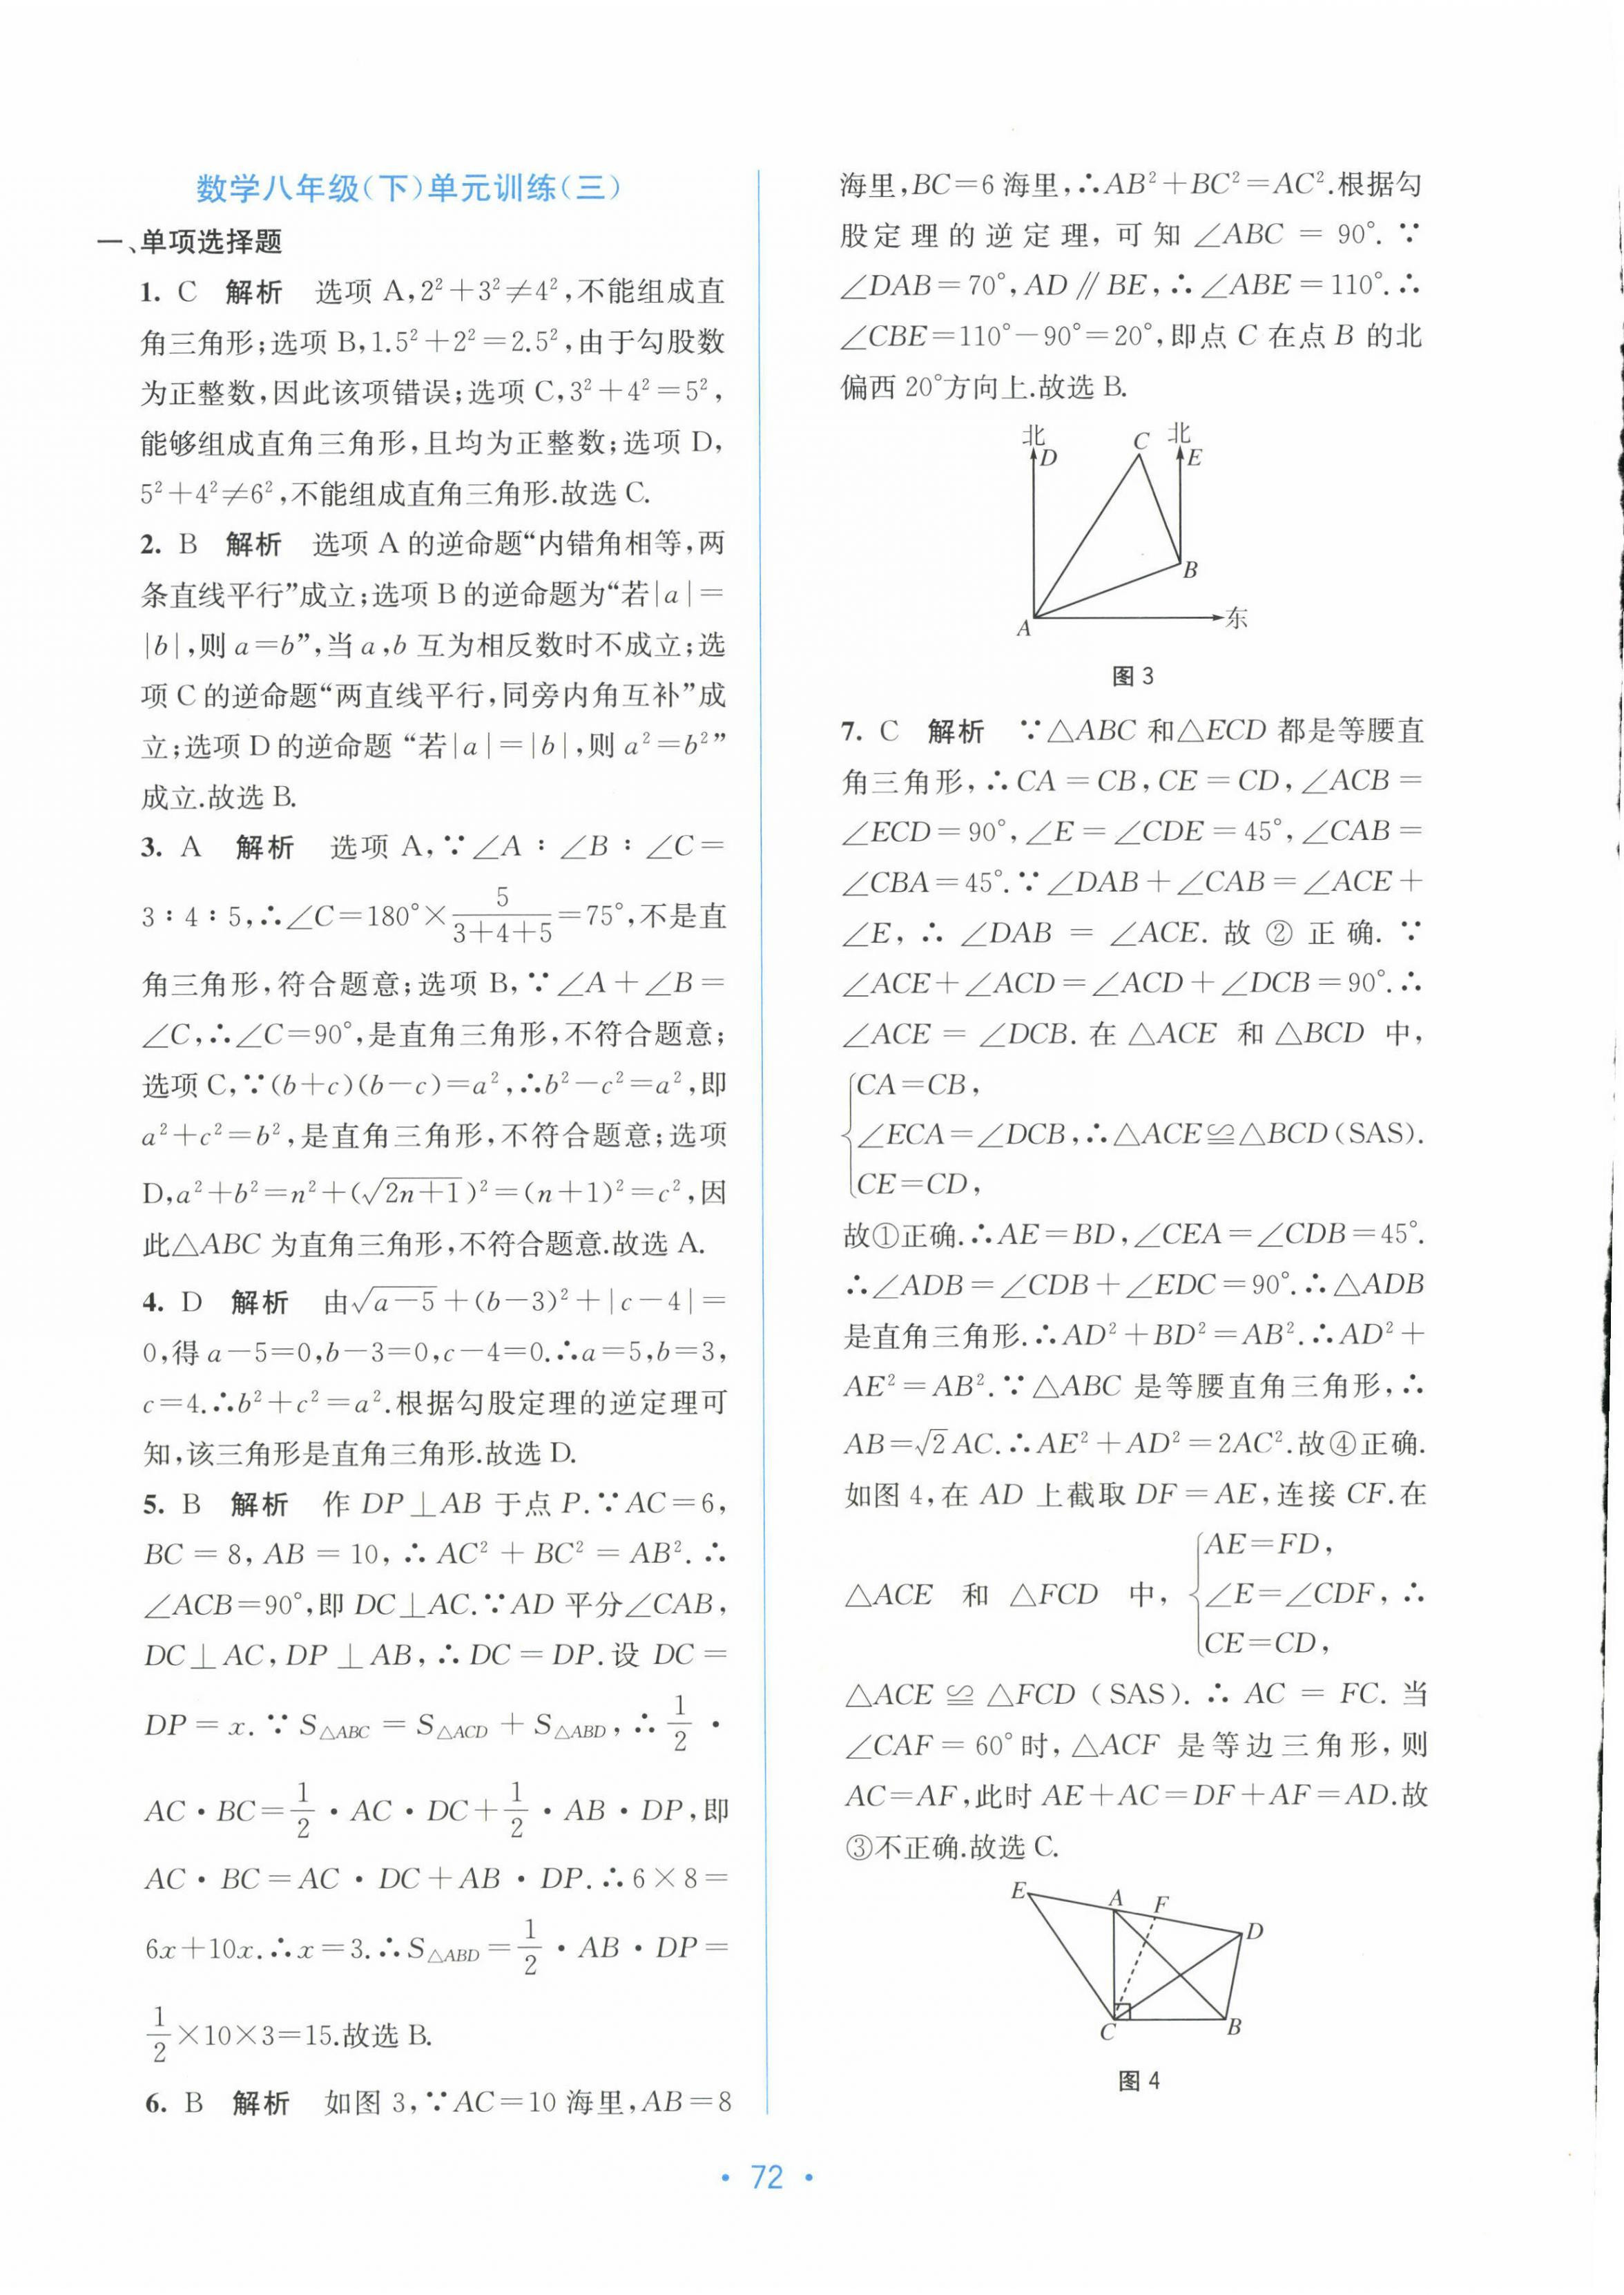 数学八年级(下)单元训练(三)
一、单项选择题
1. C 解析 选项 A,2²+3²≠4²,不能组成直
角三角形;选项 B,1.5²+2²=2.5²,由于勾股数
为正整数,因此该项错误;选项 C,3²+4²=5²,
能够组成直角三角形,且均为正整数;选项 D,
5²+4²≠6²,不能组成直角三角形.故选 C.
2. B 解析 选项 A 的逆命题“内错角相等,两
条直线平行”成立;选项 B 的逆命题为“若|a|=
|b|,则 a=b”,当 a,b 互为相反数时不成立;选
项 C 的逆命题“两直线平行,同旁内角互补”成
立;选项 D 的逆命题“若|a|=|b|,则 a²=b²”
成立.故选 B.
3. A 解析 选项 A,∵∠A:∠B:∠C=
3:4:5,∴∠C=180°×5/(3+4+5)=75°,不是直
角三角形,符合题意;选项 B,∵∠A+∠B=
∠C,∴∠C=90°,是直角三角形,不符合题意;
选项 C,∵(b+c)(b-c)=a²,∴b²-c²=a²,即
a²+c²=b²,是直角三角形,不符合题意;选项
D,a²+b²=n²+(√(2n+1))²=(n+1)²=c²,因
此△ABC 为直角三角形,不符合题意.故选 A.
4. D 解析 由√(a-5)+(b-3)²+|c-4|=
0,得 a-5=0,b-3=0,c-4=0.∴a=5,b=3,
c=4.∴b²+c²=a².根据勾股定理的逆定理可
知,该三角形是直角三角形.故选 D.
5. B 解析 作 DP⊥AB 于点 P.∵AC=6,
BC=8,AB=10,∴AC²+BC²=AB².∴
∠ACB=90°,即 DC⊥AC.∵AD 平分∠CAB,
DC⊥AC,DP⊥AB,∴DC=DP.设 DC=
DP=x.∵S△ABC=S△ACD+S△ABD,∴1/2·
AC·BC=1/2·AC·DC+1/2·AB·DP,即
AC·BC=AC·DC+AB·DP.∴6×8=
6x+10x.∴x=3.∴S△ABD=1/2·AB·DP=
1/2×10×3=15.故选 B.
6. B 解析 如图 3,∵AC=10 海里,AB=8
海里,BC=6 海里,∴AB²+BC²=AC².根据勾
股定理的逆定理,可知∠ABC=90°.∵
∠DAB=70°,AD∥BE,∴∠ABE=110°.∴
∠CBE=110°-90°=20°,即点 C 在点 B 的北
偏西 20°方向上.故选 B.
北
D
C
北
E
B
A
东
图 3
7. C 解析 ∵△ABC 和△ECD 都是等腰直
角三角形,∴CA=CB,CE=CD,∠ACB=
∠ECD=90°,∠E=∠CDE=45°,∠CAB=
∠CBA=45°.∵∠DAB+∠CAB=∠ACE+
∠E,∴∠DAB=∠ACE.故②正确.∵
∠ACE+∠ACD=∠ACD+∠DCB=90°.∴
∠ACE=∠DCB.在△ACE 和△BCD 中,
CA=CB,
∠ECA=∠DCB,∴△ACE≌△BCD(SAS).
CE=CD,
故①正确.∴AE=BD,∠CEA=∠CDB=45°.
∴∠ADB=∠CDB+∠EDC=90°.∴△ADB
是直角三角形.∴AD²+BD²=AB².∴AD²+
AE²=AB².∵△ABC 是等腰直角三角形,∴
AB=√2AC.∴AE²+AD²=2AC².故④正确.
如图 4,在 AD 上截取 DF=AE,连接 CF.在
AE=FD,
△ACE 和△FCD 中, ∠E=∠CDF,∴
CE=CD,
△ACE≌△FCD(SAS).∴AC=FC.当
∠CAF=60°时,△ACF 是等边三角形,则
AC=AF,此时 AE+AC=DF+AF=AD.故
③不正确.故选 C.
E
A
F
D
C
B
图 4
· 72 ·